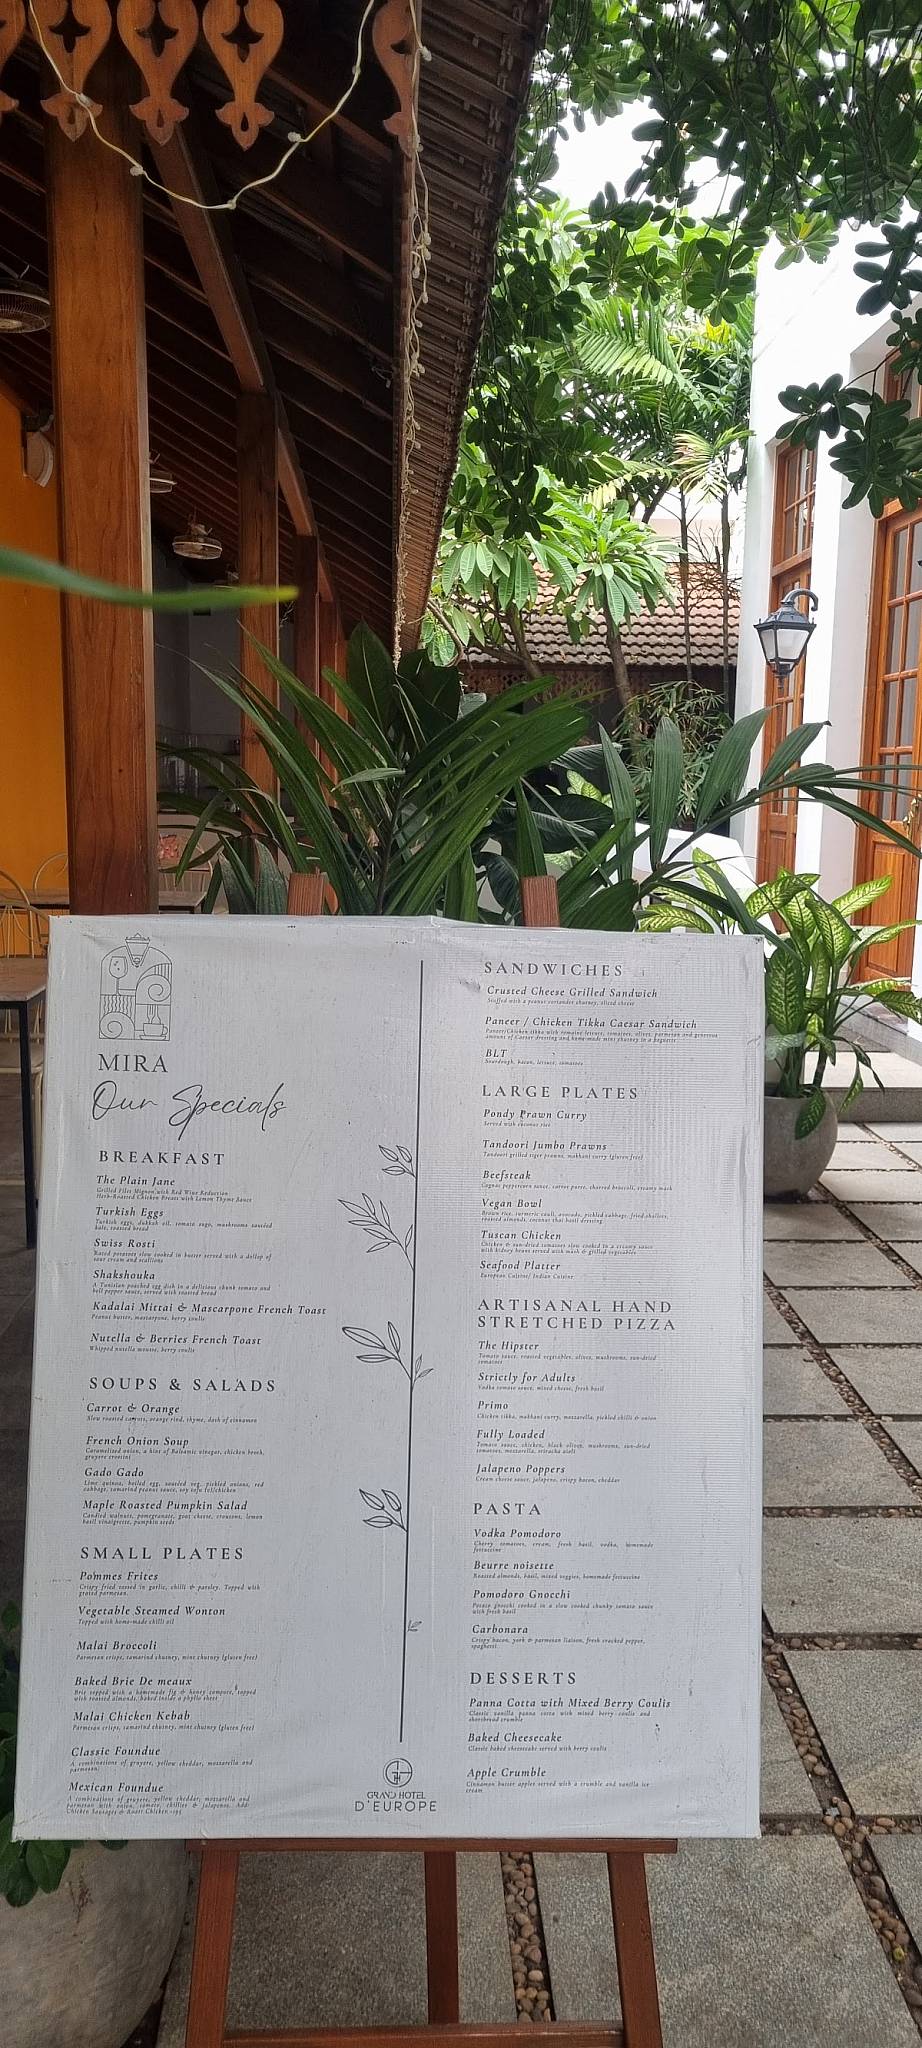 MIRA
Our Specials
BREAKFAST
The Plain Jane
Grilled Filet Mignon with Red Wine Reduction
Herb-Roasted Chicken Breats with Lemon Thyme Sauce
Turkish Eggs
Turkish eggs, dukkah oil, tomato sugo, mushrooms sauteed
kale, toasted bread
Swiss Rosti
Rated potatoes slow cooked in butter served with a dollop of
sour cream and scallions
Shakshouka
A Tunisian poached egg dish in a delicious chunk tomato and
bell pepper sauce, served with toasted bread
Kadalai Mittai & Mascarpone French Toast
Peanut butter, mascarpone, berry coulis
Nutella & Berries French Toast
Whipped nutella mousse, berry coulis
SOUPS & SALADS
Carrot & Orange
Slow roasted carrots, orange rind, thyme, dash of cinnamon
French Onion Soup
Caramelized onion, a hint of Balsamic vinegar, chicken broth,
gruyere crostini
Gado Gado
Lime quinoa, boiled egg, sauteed veg, pickled onions, red
cabbage, tamarind peanut sauce, soy tofu fet/chicken
Maple Roasted Pumpkin Salad
Candied walnuts, pomegranate, goat cheese, croutons, lemon
basil vinaigrette, pumpkin seeds
SMALL PLATES
Pommes Frites
Crispy fried tossed in garlic, chilli & parsley. Topped with
grated parmesan.
Vegetable Steamed Wonton
Topped with home-made chilli oil
Malai Broccoli
Parmesan crisps, tamarind chutney, mint chutney (gluten free)
Baked Brie De meaux
Brie topped with a homemade fig & honey compote, topped
with roasted almonds, baked inside a phyllo sheet
Malai Chicken Kebab
Parmesan crisps, tamarind chutney, mint chutney (gluten free)
Classic Foundue
A combinations of gruyere, yellow cheddar, mozzarella and
parmesan
Mexican Foundue
A combinations of gruyere, yellow cheddar, mozzarella and
parmesan with onion, tomato, chillies & jalapenos. Add:
Chicken Sausages & Roast Chicken
SANDWICHES
Crusted Cheese Grilled Sandwich
Stuffed with a peanut coriander chutney, sliced cheese
Paneer / Chicken Tikka Caesar Sandwich
Paneer/Chicken tikka with romaine lettuce, tomatoes, olives, parmesan and generous
amount of Caesar dressing and home-made mint chutney in a baguette
BLT
Sourdough, bacon, lettuce, tomatoes
LARGE PLATES
Pondy Prawn Curry
Served with coconut rice
Tandoori Jumbo Prawns
Tandoori grilled tiger prawns, makhani curry (gluten free)
Beefsteak
Cognac peppercorn sauce, carrot puree, charred broccoli, creamy mash
Vegan Bowl
Brown rice, turmeric cauli, avocado, pickled cabbage, fried shallots,
roasted almonds, coconut thai basil dressing
Tuscan Chicken
Chicken & sun-dried tomatoes slow cooked in a creamy sauce
with kidney beans served with mash & grilled vegetables
Seafood Platter
European Cuisine/ Indian Cuisine
ARTISANAL HAND
STRETCHED PIZZA
The Hipster
Tomato sauce, roasted vegetables, olives, mushrooms, sun-dried
tomatoes
Strictly for Adults
Vodka tomato sauce, mixed cheese, fresh basil
Primo
Chicken tikka, makhani curry, mozzarella, pickled chilli & onion
Fully Loaded
Tomato sauce, chicken, black olives, mushrooms, sun-dried
tomatoes, mozzarella, sriracha aioli
Jalapeno Poppers
Cream cheese sauce, jalapeno, crispy bacon, cheddar
PASTA
Vodka Pomodoro
Cherry tomatoes, cream, fresh basil, vodka, homemade
fettuccine
Beurre noisette
Roasted almonds, basil, mixed veggies, homemade fettuccine
Pomodoro Gnocchi
Potato gnocchi cooked in a slow cooked chunky tomato sauce
with fresh basil
Carbonara
Crispy bacon, york & parmesan liaison, fresh cracked pepper,
spaghetti
DESSERTS
Panna Cotta with Mixed Berry Coulis
Classic vanilla panna cotta with mixed berry coulis and
shortbread crumble
Baked Cheesecake
Classic baked cheesecake served with berry coulis
Apple Crumble
Cinnamon butter apples served with a crumble and vanilla ice
cream
GRAND HOTEL
D'EUROPE